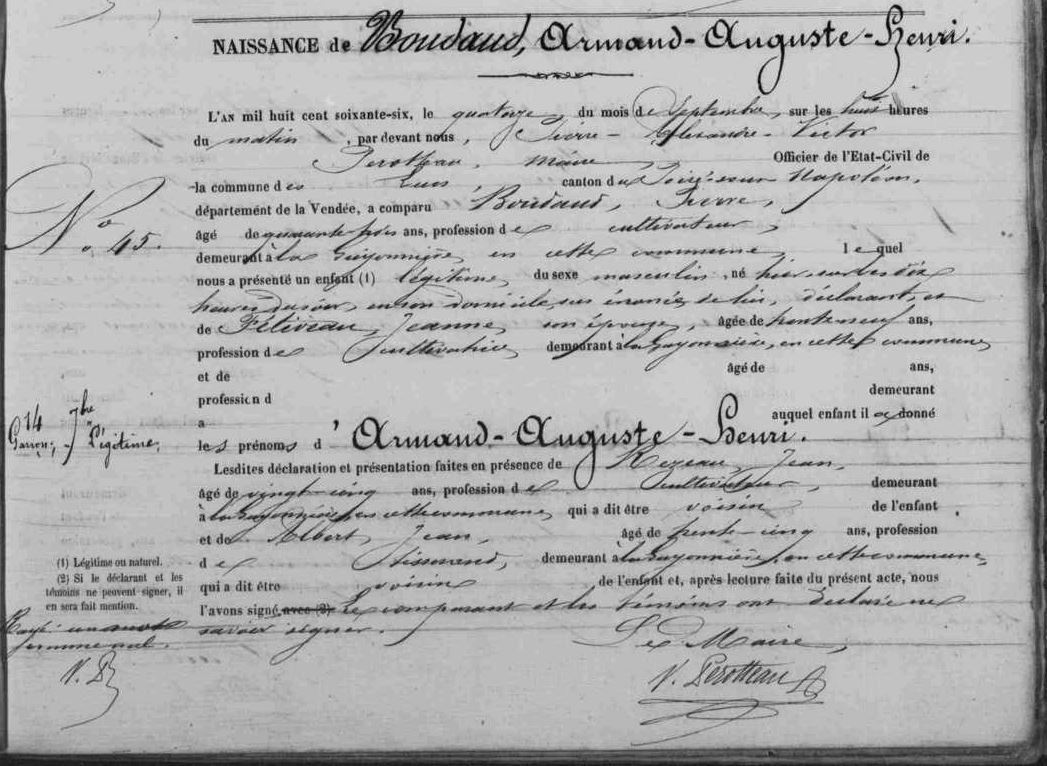 NAISSANCE de Boudaud, Armand-Auguste-Henri.
L'AN mil huit cent soixante-six, le quatorze, du mois de Septembre, sur les huit heures
du matin, par devant nous, Pierre-Alexandre-Victor
Perotteau, Maire, Officier de l'Etat-Civil de
la commune des Lucs, canton du Poiré-sur Napoléon,
N° 45.
département de la Vendée, a comparu Boudaud, Pierre,
âgé de quarante trois ans, profession de cultivateur,
demeurant à la Guyonnière, en cette commune, lequel
nous a présenté un enfant (1) légitime, du sexe masculin, né hier sur les dix
heures du soir, en son domicile, sus énoncé, de lui, déclarant, et
de Féliveau, Jeanne, son épouse, âgée de trente-neuf ans,
profession de cultivatrice, demeurant à la Guyonnière, en cette commune,
et de âgé de ans,
profession d demeurant
14 7bre
Garçon, Légitime,
a auquel enfant il a donné
les prénoms d'Armand-Auguste-Henri.
Lesdites déclaration et présentation faites en présence de Rezeau, Jean,
âgé de vingt-cinq ans, profession de cultivateur, demeurant
à la Guyonnière, en cette commune, qui a dit être voisin de l'enfant
et de Albert, Jean, âgé de trente-cinq ans, profession
de Tisserand, demeurant à la Guyonnière, en cette commune,
qui a dit être voisin de l'enfant et, après lecture faite du présent acte, nous
l'avons signé avec (2) Le comparant et les témoins ont déclaré ne
savoir signer.
(1) Légitime ou naturel.
(2) Si le déclarant et les
témoins ne peuvent signer, il
en sera fait mention.
Rayé un mot
comme nul.
V. P
Le Maire,
V. Perotteau